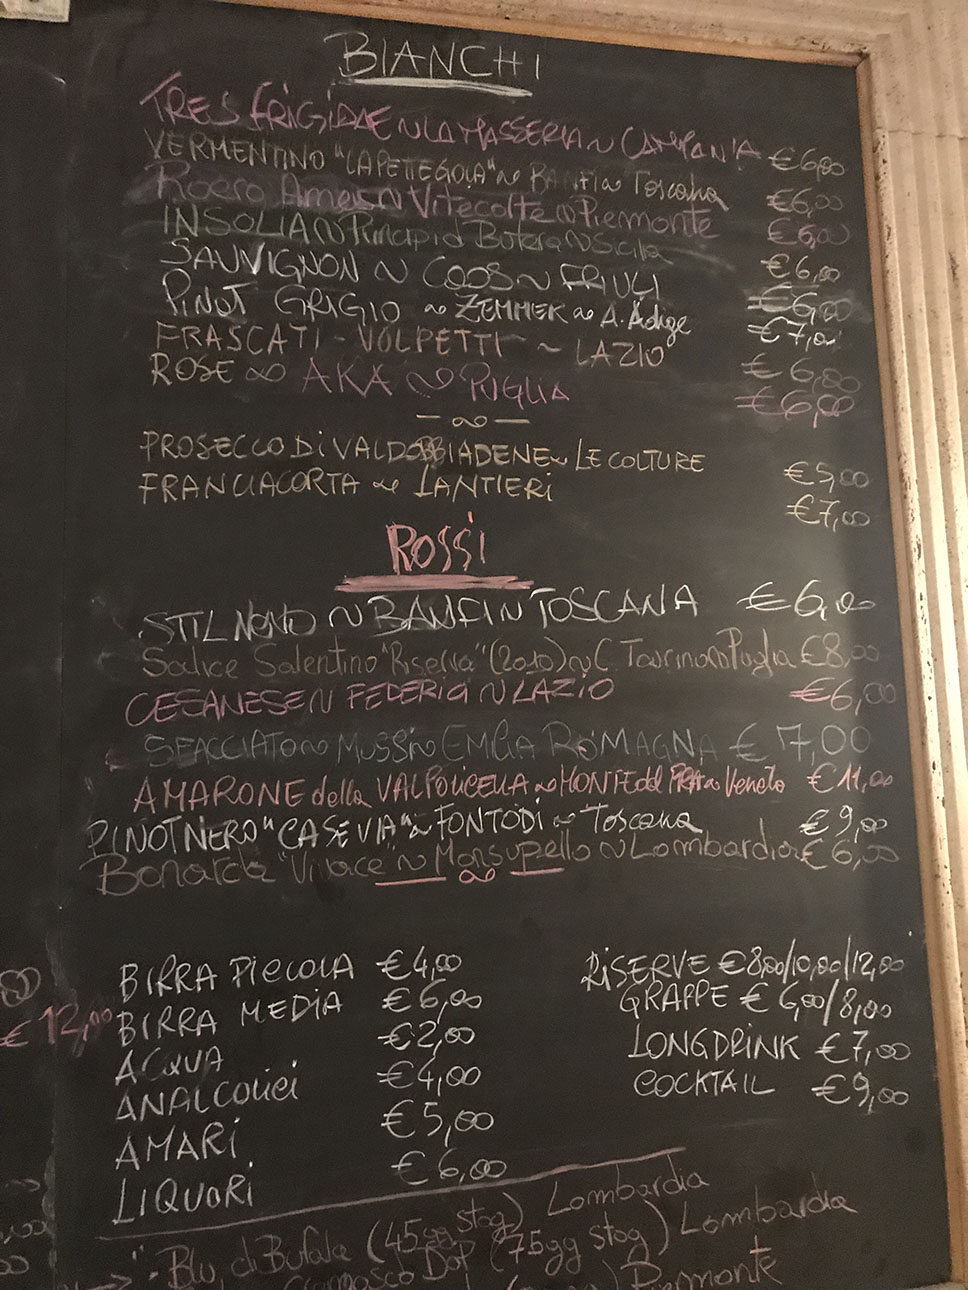 BIANCHI
TRES FRIGIDAE ~ LA MASSERIA ~ CAMPANIA €6,00
VERMENTINO "LA PETTEGOLA" ~ BANFI ~ Toscana €6,00
Roero Arneis ~ Vitecolte ~ Piemonte €6,00
INSOLIA ~ Principi di Butera ~ Sicilia €6,00
SAUVIGNON ~ COOS ~ FRIULI €6,00
PINOT GRIGIO ~ ZEMMER ~ A. Adige €7,00
FRASCATI - VOLPETTI ~ LAZIO €6,00
ROSE ~ AKA ~ PUGLIA €6,00
- ~ -
PROSECCO DI VALDOBBIADENE ~ LE COLTURE €5,00
FRANCIACORTA ~ LANTIERI €7,00
ROSSI
STILNOVO ~ BANFI ~ TOSCANA €6,00
Salice Salentino "Riserva" (2010) ~ C. Taurino ~ Puglia €8,00
CESANESE ~ FEDERICI ~ LAZIO €6,00
SFACCIATO ~ MUSSI ~ EMILIA ROMAGNA €7,00
AMARONE della VALPOLICELLA ~ MONTE del FRA ~ Veneto €11,00
PINOT NERO "CASE VIA" ~ FONTODI ~ Toscana €9,00
Bonarda "Vivace" ~ Monsupello ~ Lombardia €6,00
— ~ —
BIRRA PICCOLA €4,00
BIRRA MEDIA €6,00
ACQUA €2,00
ANALCOLICI €4,00
AMARI €5,00
LIQUORI €6,00
RISERVE €8,00/10,00/12,00
GRAPPE €6,00/8,00
LONGDRINK €7,00
COCKTAIL €9,00
€12,00
Blu di Bufala (45gg stag) Lombardia
DOP (75gg stag) Lombardia
Piemonte